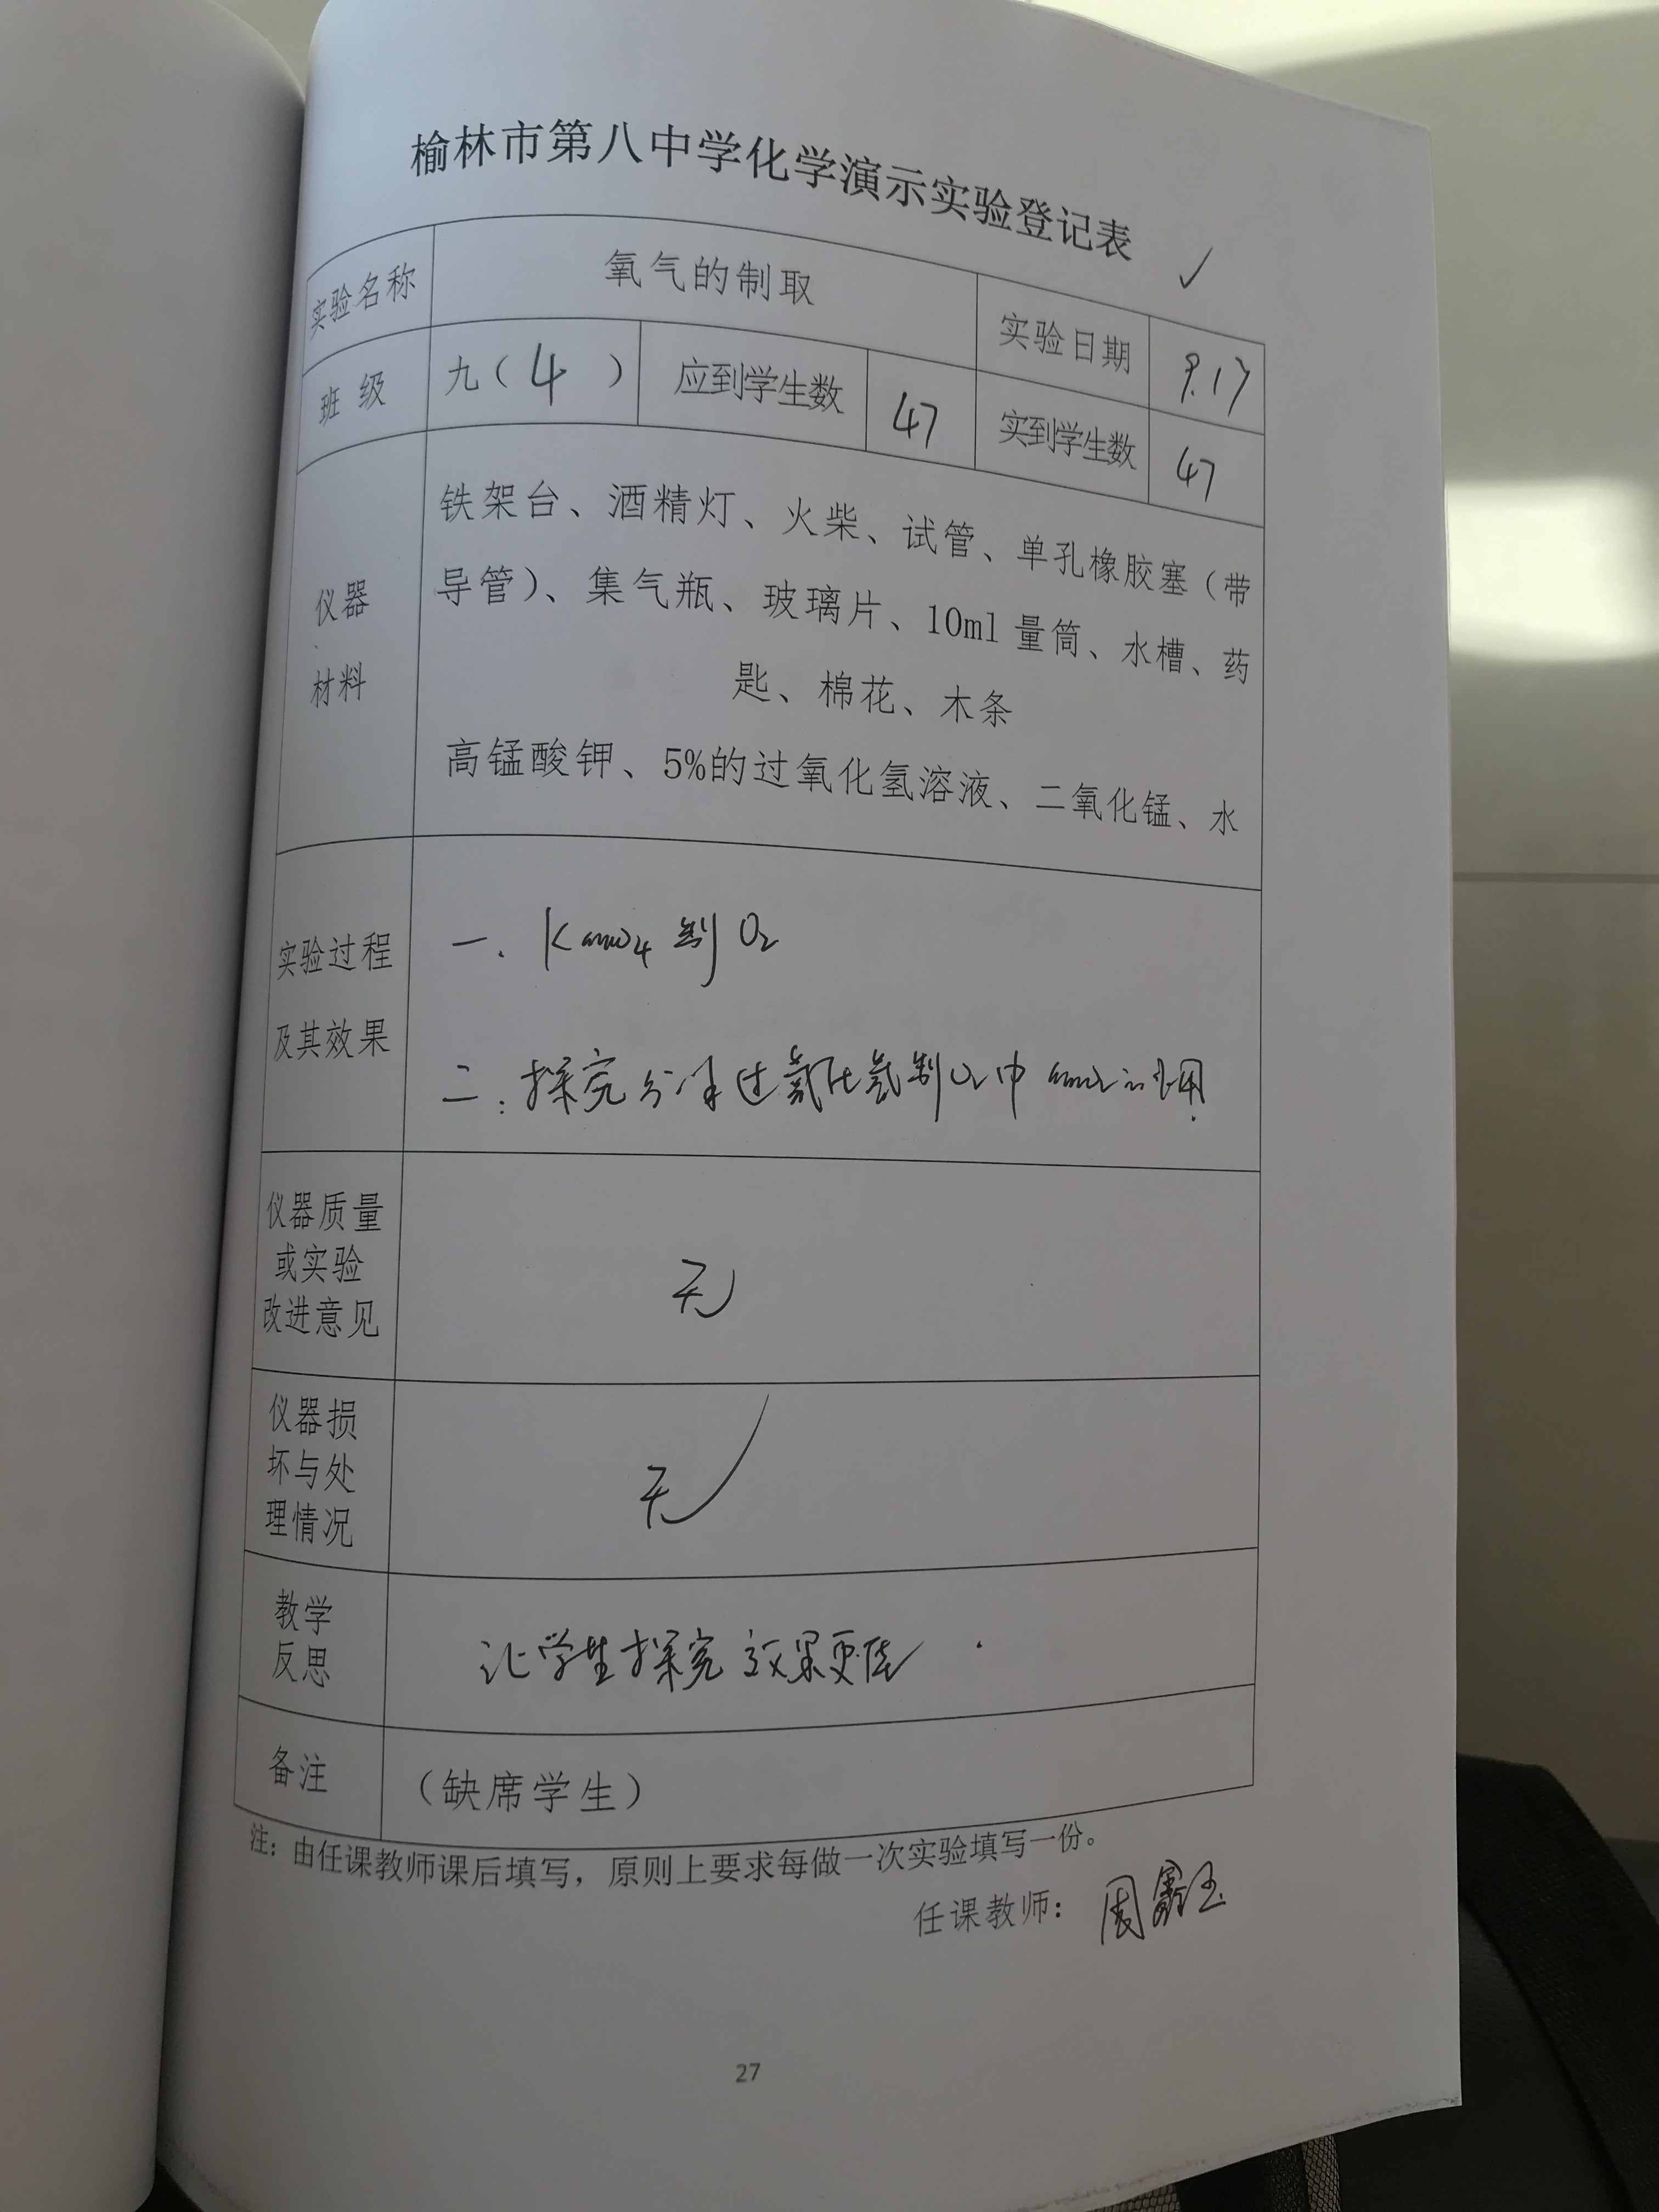 榆林市第八中学化学演示实验登记表
实验名称 氧气的制取 实验日期 9.17
班级 九（4） 应到学生数 47 实到学生数 47
仪器
材料
铁架台、酒精灯、火柴、试管、单孔橡胶塞（带
导管）、集气瓶、玻璃片、10ml量筒、水槽、药
匙、棉花、木条
高锰酸钾、5%的过氧化氢溶液、二氧化锰、水
实验过程
及其效果
一. KmnO4制O2
二: 探究分解过氧化氢制O2中mnO2的作用.
仪器质量
或实验
改进意见
无
仪器损
坏与处
理情况
无
教学
反思
让学生探究效果更佳.
备注 （缺席学生）
注：由任课教师课后填写，原则上要求每做一次实验填写一份。
任课教师：周鑫玉
27